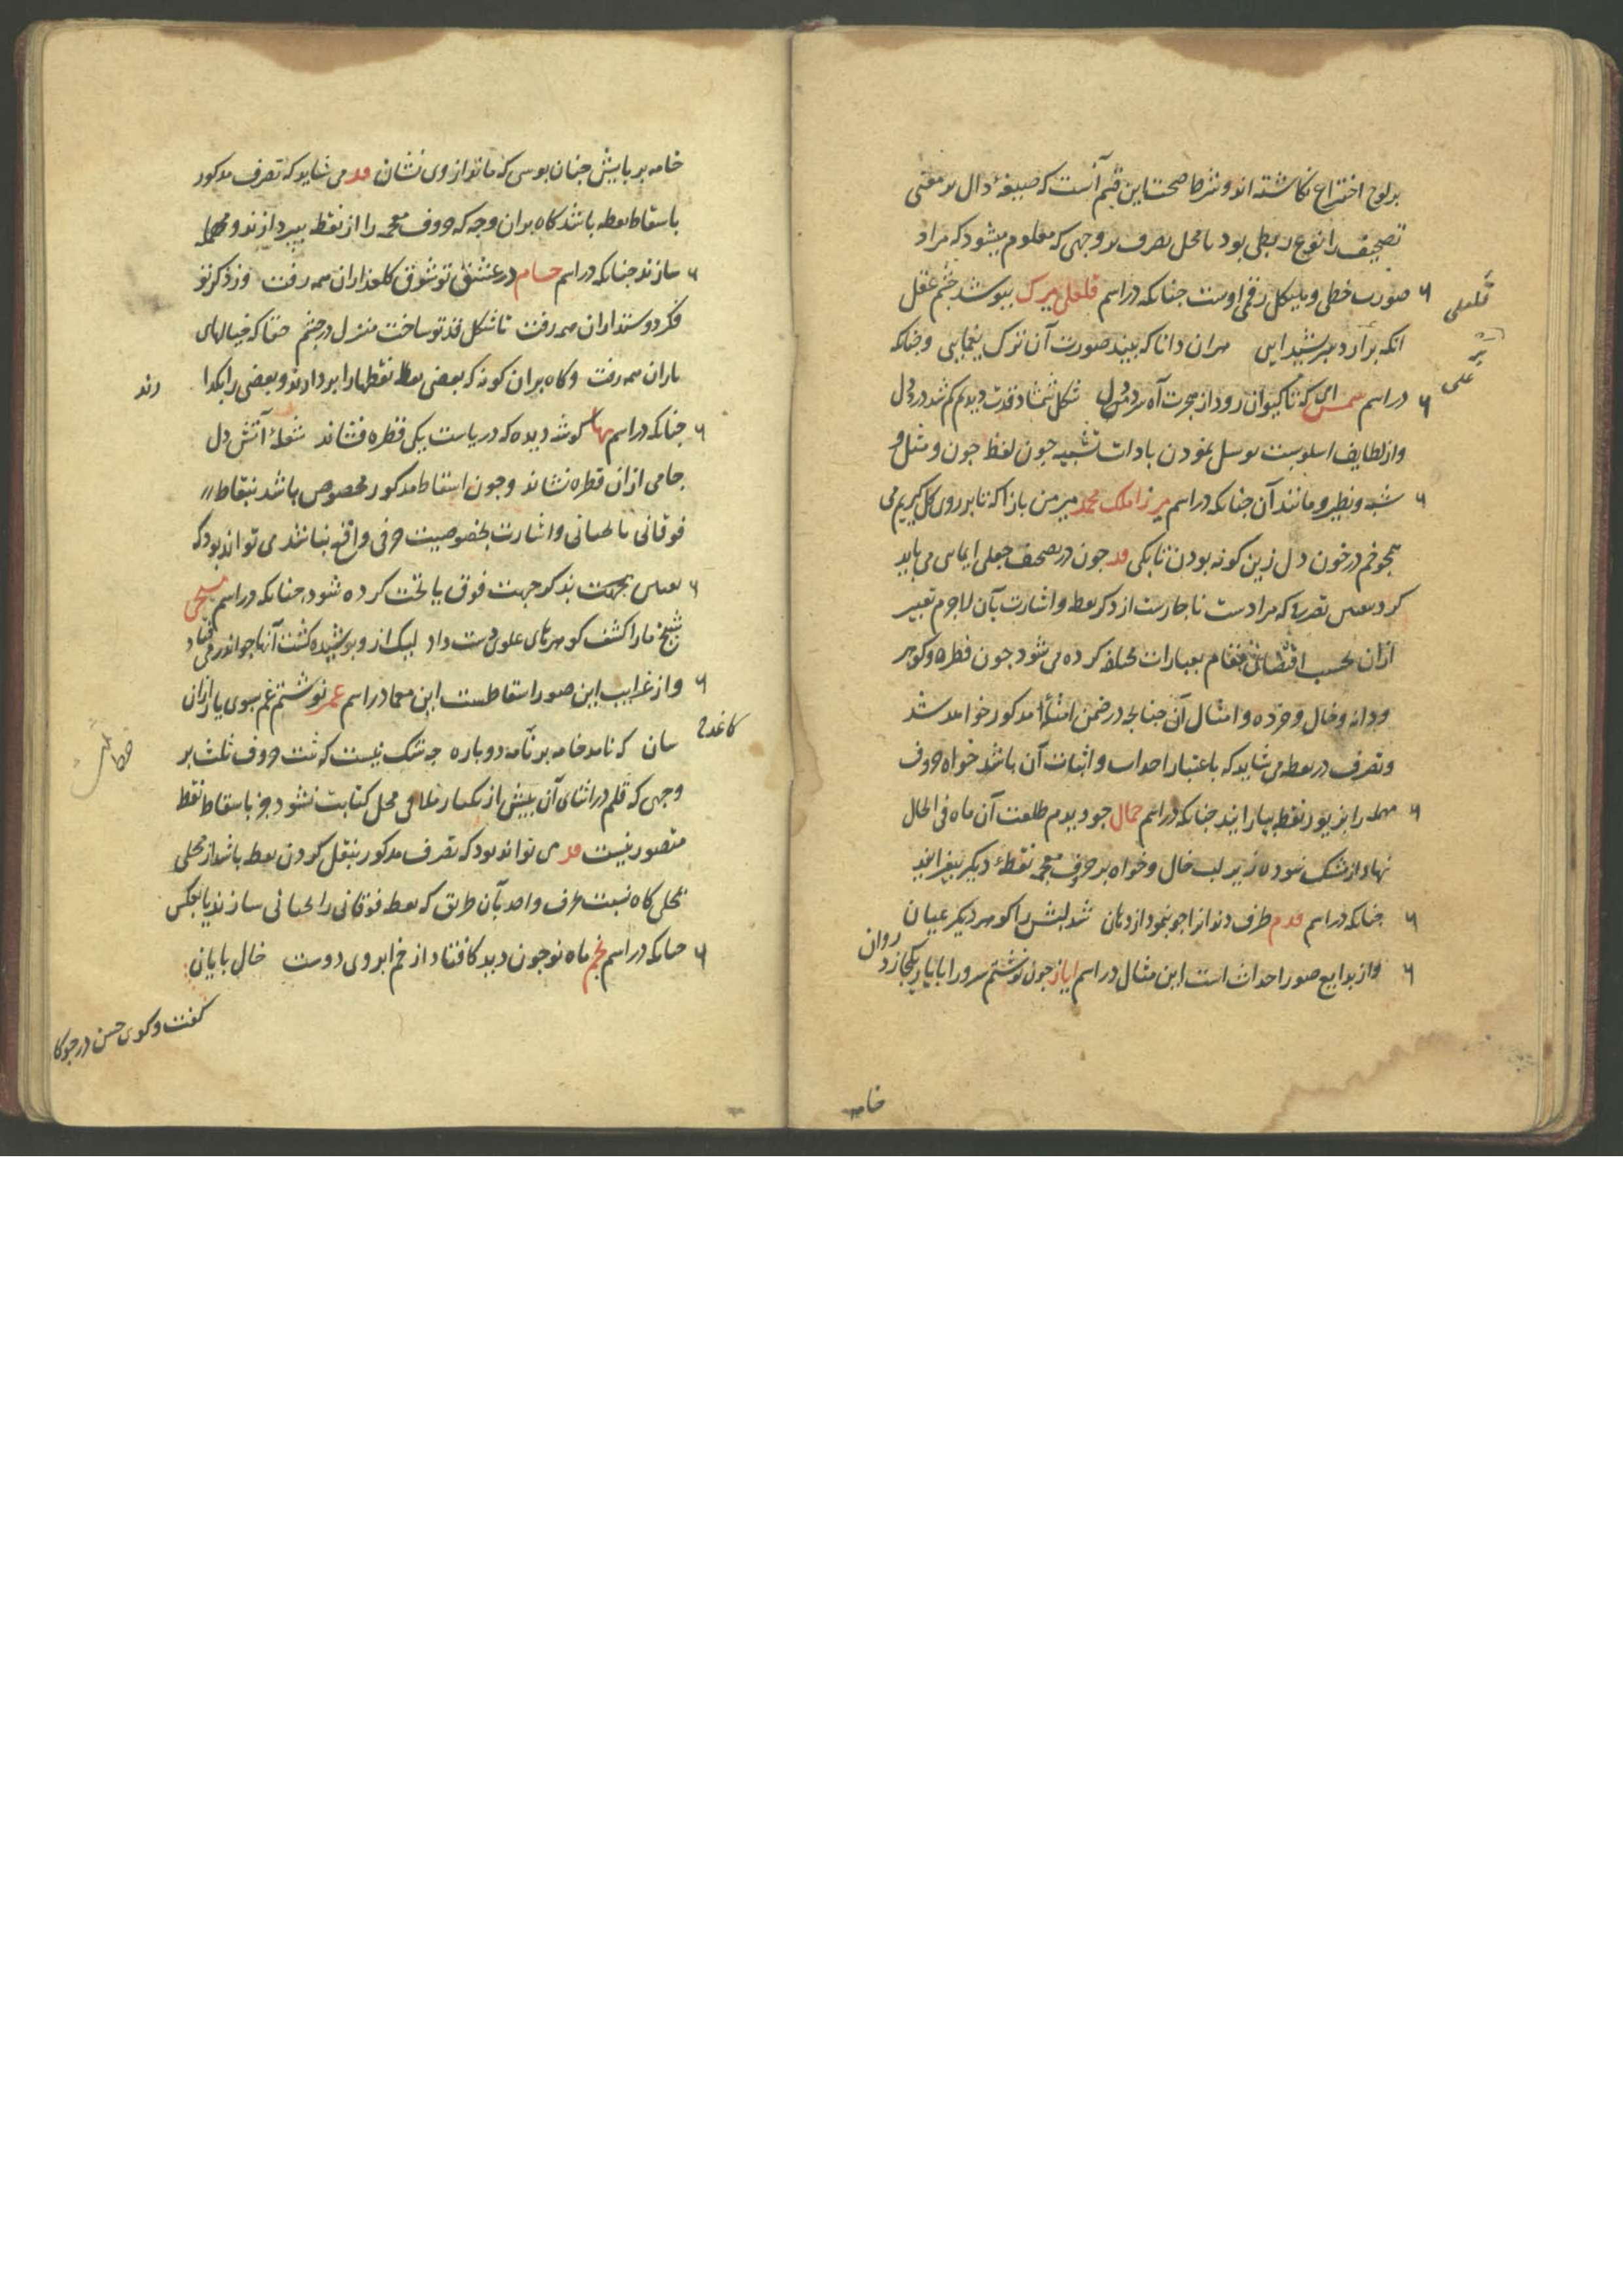 بر لوح اختراع نکاشته اند و شرط صحت این قسم آنست که صیغهٔ دال بر معنی
تصحیف را نوع ربطی بود با محل تصرف بر وجهی که معلوم میشود که مراد
صورت خطی و هیکل رقمی اوست چنانکه در اسم قلعلی میرک بپوشد چشم عقل
انکه برارد بهر شیدایی هران دانا که بیند صورت آن ترک یغمایی و چنانکه
در اسم شمس ای که تا کیوان رود از هجرت آه سرد دل شکل شمشاد قدت دیدیم کم شد درد دل
و از لطایف اسلوبست توسل نمودن بادات تشبیه چون لفظ چون و مثل و
شبه و نظیر و مانند آن چنانکه در اسم میرزا ملک محمد میر من بازا که تا بر روی کل کیریم می
همچو خم در خون دل زین کونه بودن تا بکی قد چون در تصحیف جعلی ایمایی می باید
کرد بعض تصرف که مرادست ناچارست از ذکر نقطه و اشارت بآن لاجرم تعبیر
ازان بحسب اقتضای مقام بعبارات مختلفه کرده می شود چون قطره و کوهر
و دانه و خال و خرده و امثال آن چنانچه در ضمن امثلهٔ مذکور خواهد شد
و تصرف در نقطه می شاید که باعتبار احداث و اثبات آن باشد خواه حروف
مهمله را بزیور نقطه بیارایند چنانکه در اسم جمال چو دیدم طلعت آن ماه فی الحال
نهاد از مشک سوده زیر لب خال و خواه بر حروف معجمه نقطهٔ دیکر بیفزایند
چنانکه در اسم قدم طرف دندانرا چو بنمود از دهان شد لبش را کوهر دیکر عیان
و از بدایع صور احداث است این مثال در اسم ایاز چون نوشتم سرور ابا یار یکجا زد روان
خامه
قلعلی
علی
خامه بر پایش چنان بوسی که ماند از وی نشان قد می شاید که تصرف مذکور
باسقاط نقطه باشد کاه بران وجه که حروف معجمه را از نقطه بپردازند و مهمله
سازند چنانکه در اسم حسام در عشق تو شوق کلعذاران همه رفت وز ذکر تو
فکر دوستداران همه رفت تا شکل قد تو ساخت منزل در چشم حقا که خیالهای
یاران همه رفت و کاه بران کونه که بعضی نقطها را بردارند و بعضی را بکذا
رند
چنانکه در اسم بها کوشه دیده که دریاست یکی قطره فشاند شعلهٔ آتش دل
جامی ازان قطره نشاند و چون اسقاط مذکور مخصوص باشد بنقاط
فوقانی یا تحتانی و اشارت بخصوصیت حرفی واقع نباشد می تواند بود که
تعیین جهت بذکر جهت فوق یا تحت کرده شود چنانکه در اسم شیخی
شیخ ما را کشف کوهرهای علوی دست داد لیک ازو پوشیده کشت آنها چو اندر می فتاد
و از غرایب این صور اسقاطست این معما در اسم عمر نوشتم غم سوی یار ازان
کاغذ
سان که نامد خامه بر نامه دوباره چه شک نیست که ثبت حروف ثلث بر
وجهی که قلم در اثنای آن بیش از یکبار ملاقی محل کتابت نشود جز باسقاط نقط
متصور نیست قد می تواند بود که تصرف مذکور بنقل کردن نقطه باشد از محلی
بمحلی کاه نسبت حرف واحد بآن طریق که نقطه فوقانی را تحتانی سازند یا بعکس
چنانکه در اسم نجم ماه نو چون دید کافتاد از خم ابروی دوست خال با پایان
کفت و کوی حسن در جوکا